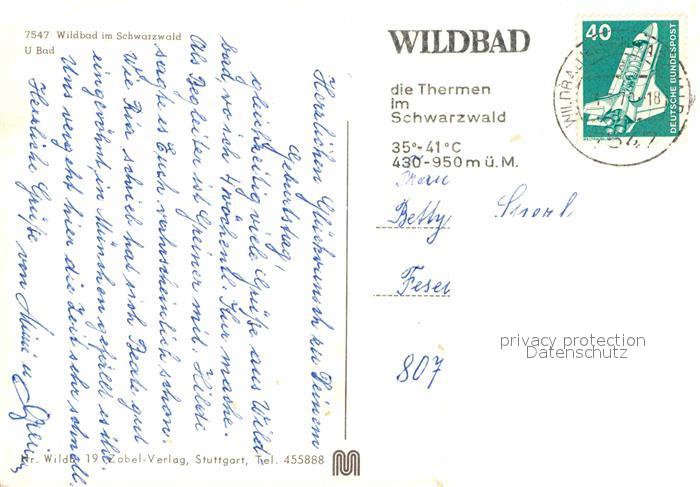 7547 Wildbad im Schwarzwald
U Bad
Herzlichen Glückwunsch zu Deinem
Geburtstag,
gleichzeitig viele Grüße aus Wild,
bad, wo ich 4 wöchentl. Kur mache.
Als Begleiter ist Greiner mit. Hilde
sagte es Euch wahrscheinlich schon.
Wie Rin schrieb hat sich Beate gut
eingewöhnt, in München gefällt es ihr.
Uns vergeht hier die Zeit sehr schnell.
Herzliche Grüße von Mimi u.
WILDBAD
die Thermen
im
Schwarzwald
35°-41°C
430-950m ü.M.
40
DEUTSCHE BUNDESPOST
WILDBAD
18
7547
Frau
Betty
Feser
807
privacy protection
Datenschutz
Nr. Wildb. 19 Zobel-Verlag, Stuttgart, Tel. 455888